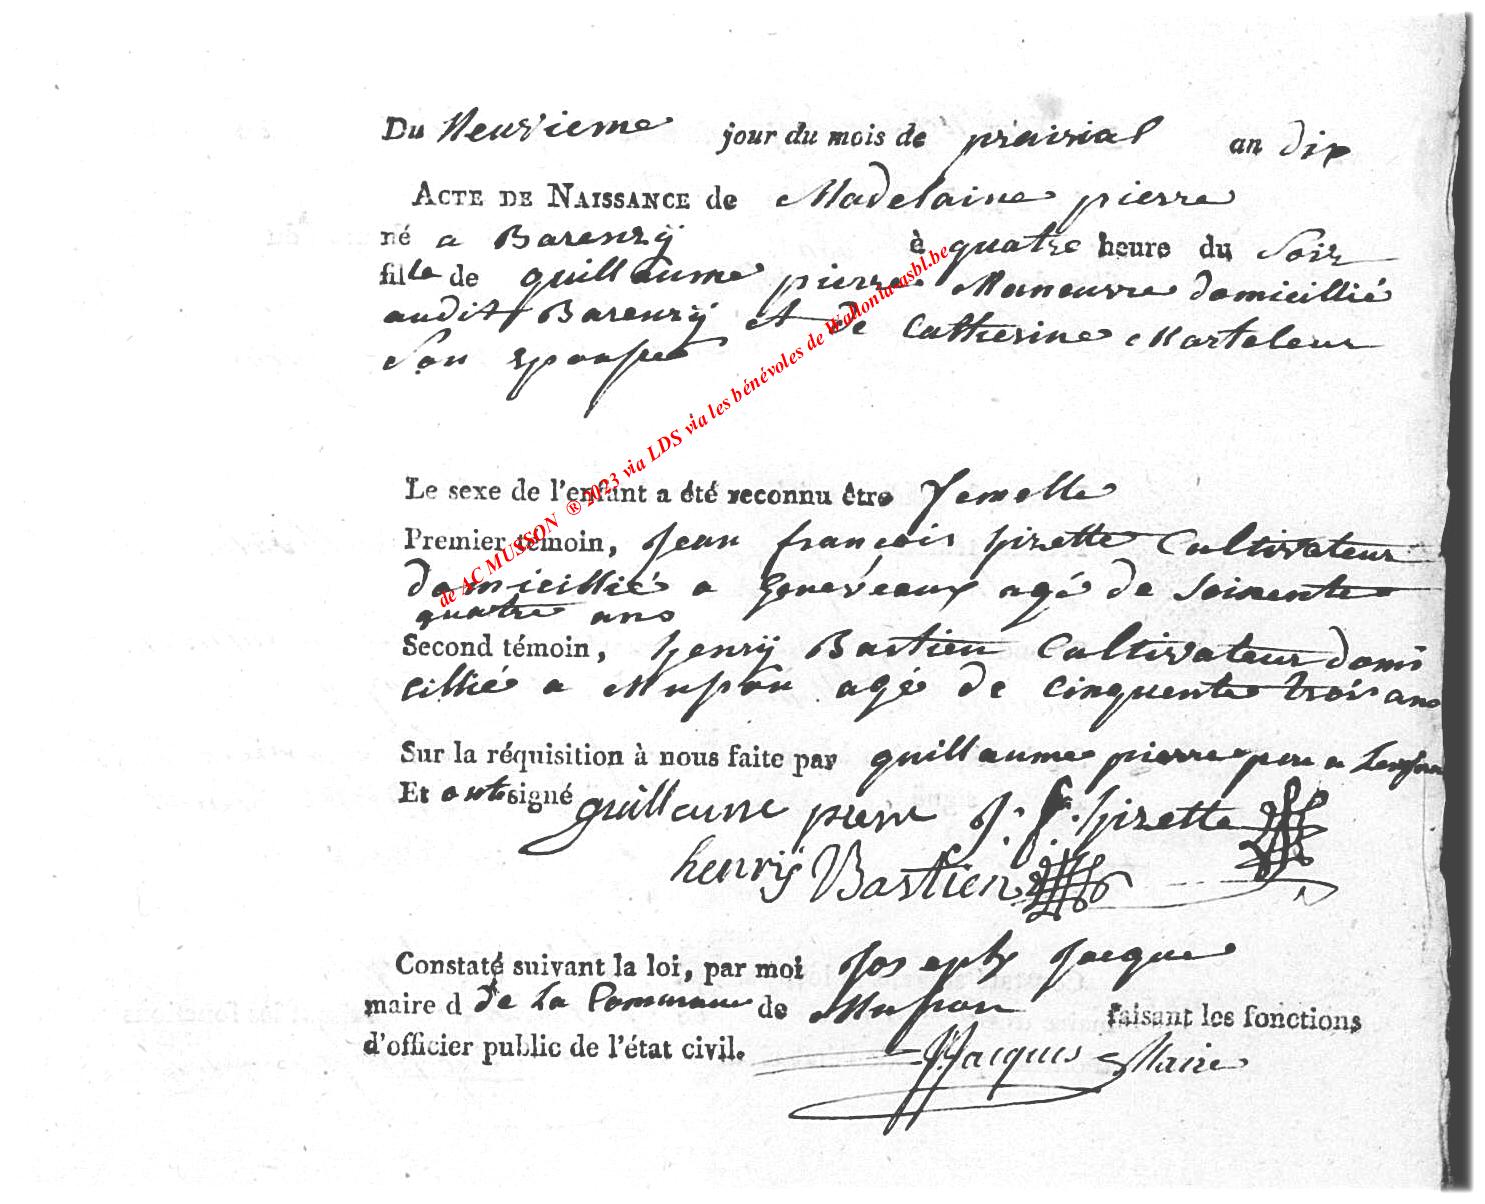 Du Neuvieme jour du mois de prairial an dix
ACTE DE NAISSANCE de Madelaine pierre
né a Barenzÿ à quatre heure du Soir
fille de guillaume pierre Maneuvre domicillié
audit Barenzÿ et de Catherine Marteleur
Son epouse
Le sexe de l'enfant a été reconnu être femelle
Premier témoin, Jean françois hizette Cultivateur
domicillié a agé de Soixente
quatre ans
Second témoin, henrÿ Bastien Cultivateur domi
cillié a Musson agé de cinquente trois ans
Sur la réquisition à nous faite par guillaume pierre pere a
Et ont signé guillaume pierre J. f. hizette
henrÿ Bastien
Constaté suivant la loi, par moi Joseph Jacque
maire d de La Commune de Musson faisant les fonctions
d'officier public de l'état civil. JJacques Maire
de AC MUSSON ® 2023 via LDS via les bénévoles de Wallonia-asbl.be